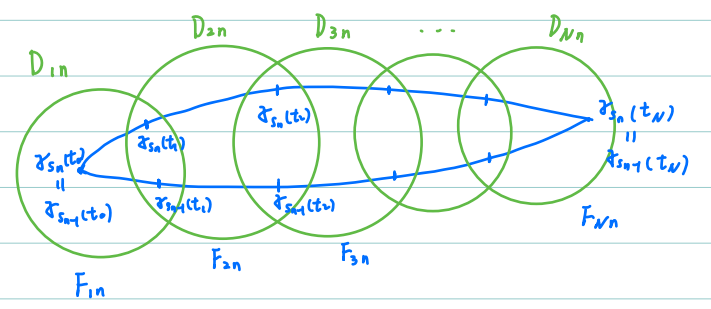 D₁ₙ D₂ₙ D₃ₙ ... D_Nₙ
γ_{sₙ}(t₀) γ_{sₙ}(t₁) γ_{sₙ}(t₂) γ_{sₙ}(t_N)
=
=
γ_{sₙ₋₁}(t₀) γ_{sₙ₋₁}(t₁) γ_{sₙ₋₁}(t₂) γ_{sₙ₋₁}(t_N)
F₁ₙ F₂ₙ F₃ₙ F_Nₙ